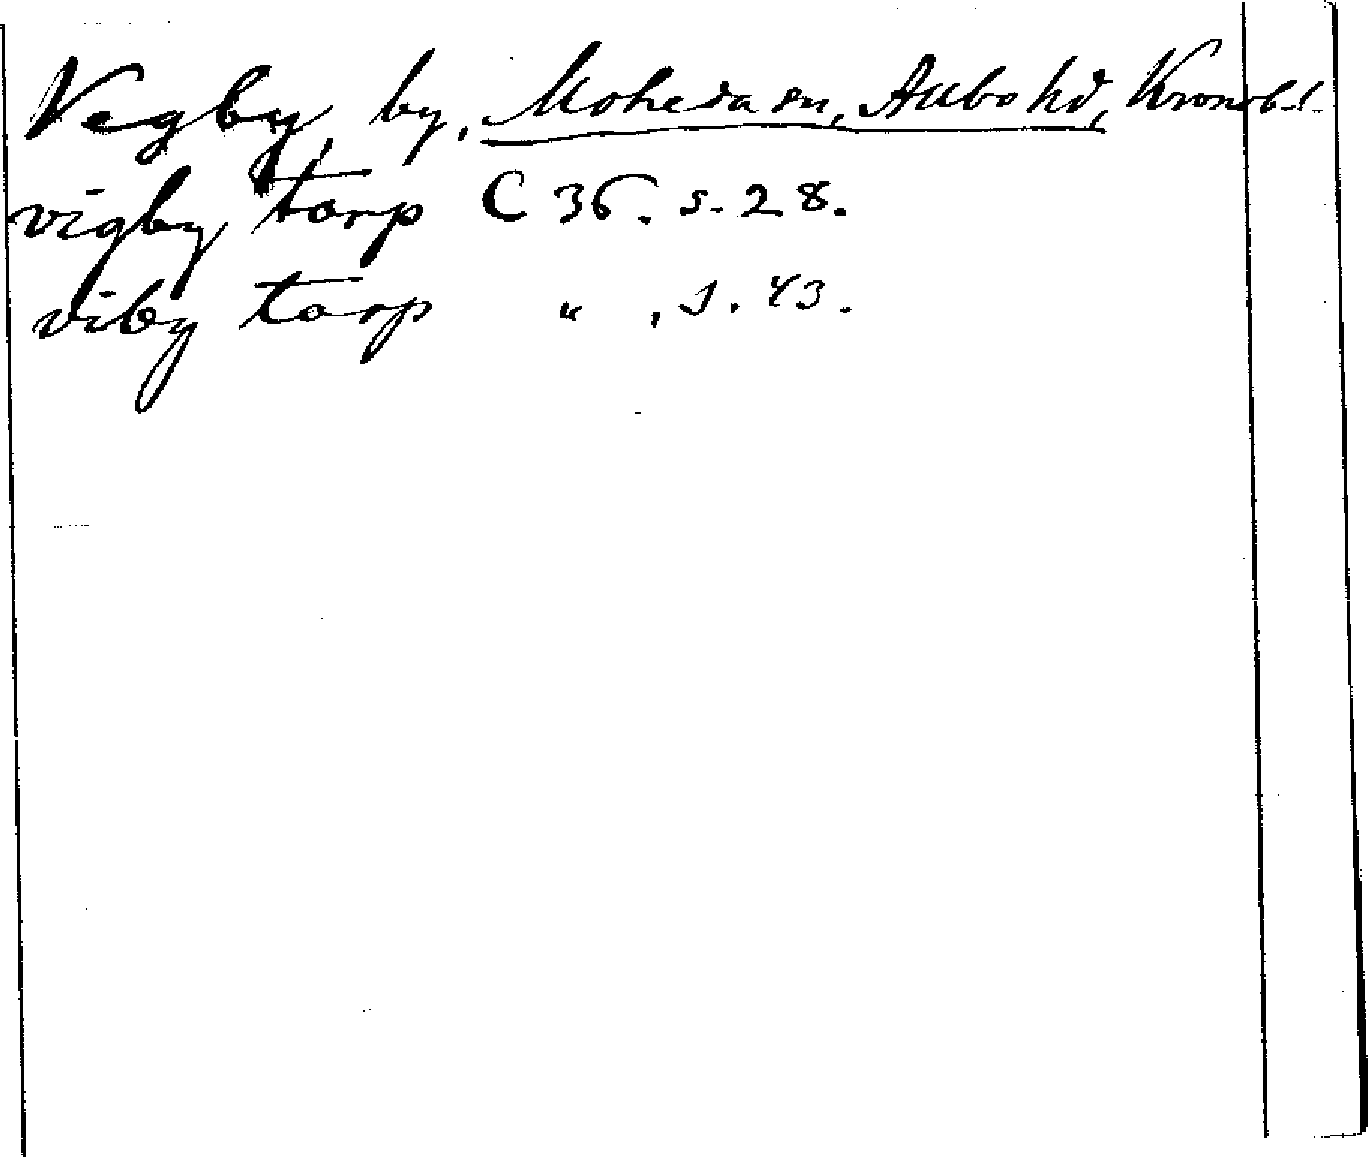 Vegby, by, Moheda sn, Allbo hd, Kronob. l.
vigby torp C 36. s. 28.
viby torp " , s. 43.